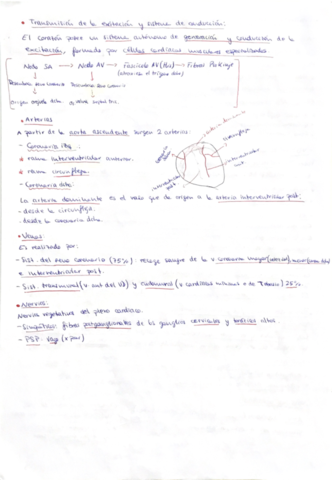 • Transmisión de la excitación y sistema de conducción:
El corazón posee un sistema autónomo de generación y conducción de la
excitación, formado por células cardíacas musculares especializadas.
Nodo SA → Nodo AV → Fascículo AV (His) → Fibras Purkinje
(atraviesa el trígono dcho)
• Arterias
A partir de la aorta ascendente surgen 2 arterias:
- Coronaria izq:
• rama interventricular anterior.
• rama circunfleja.
- Coronaria dcha:
La arteria dominante es el vaso que da origen a la arteria interventricular post:
- desde la circunfleja.
- desde la coronaria dcha.
• Venas:
Es realizado por:
- Sist. del seno coronario (75%): recoge sangre de la v coronaria mayor
e interventricular post.
- Sist. transmural (v ant del VD) y (v cardiacas mínimas o de Tebesio) 25%.
• Nervios:
Nervios vegetativos del plexo cardiaco.
- Simpático: fibras postganglionares de los ganglios cervicales y torácicos altos.
- PSP: vago (x par)